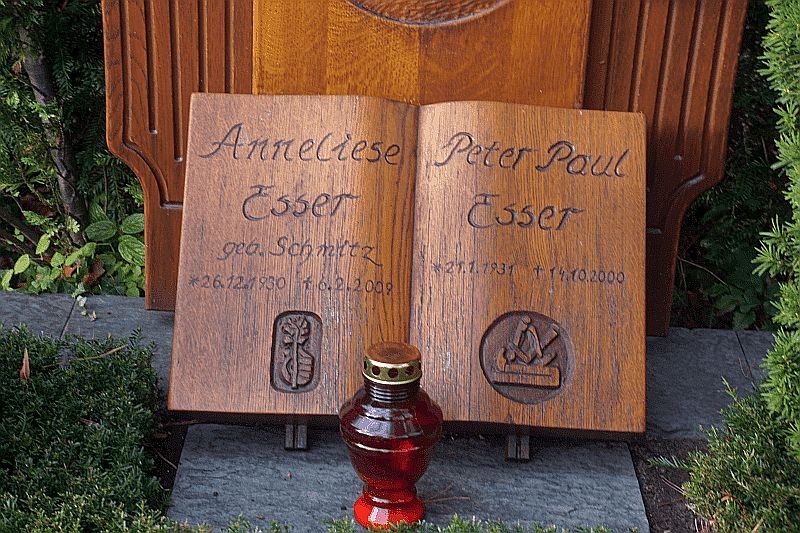 Anneliese
Esser
geb. Schmitz
*26.12.1930 †6.2.2009
Peter Paul
Esser
*21.1.1931 †14.10.2000